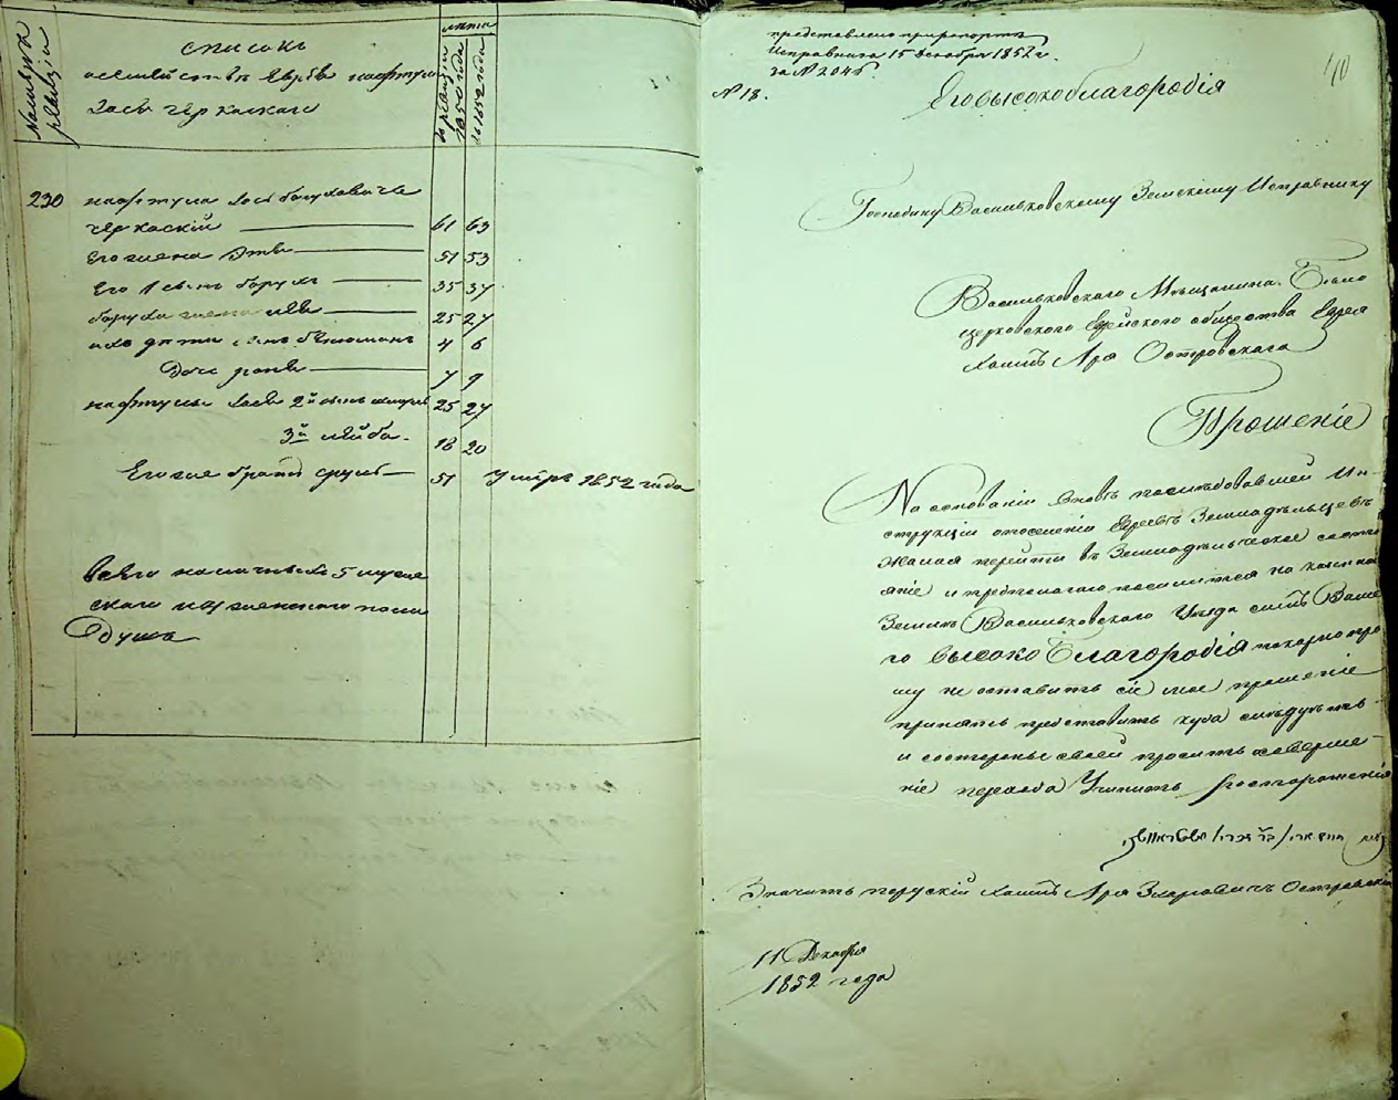 № семьи по ревизіи
списокъ
о семействѣ Еврея нафтулы
Іося черкаскаго
лѣта
по ревизіи 1850 года
до 1852 года
230 нафтула Іось боруховичъ
черкаскій 61 63
Его жена Этя 51 53
Его 1 сынъ борухъ 35 37
боруха жена 25 27
ихъ дети сынъ 4 6
Дочь 7 9
нафтулы Іося 2й сынъ 25 27
3й лейба 18 20
Его же братъ сруль 51 Умеръ 1852 года
Всего на лицо 5 мужес
скаго и 4 женскаго пола
Душъ
представлено при рапортѣ
Исправника 15 декабря 1852 г.
за № 2045
№ 18.
40
Его высокоблагородія
Господину Васильковскому Земскому Исправнику
Васильковскаго Мѣщанина Бѣло
церковскаго Еврейского общества Еврея
Хаимъ Аря Островскаго
Прошеніе
На основаніи вновь последовавшей Ин-
струкціи о поселеніи Евреевъ Земледѣльцевъ
Желая перейти въ Земледѣльческое состо
яніе и предполагаю поселится на казенной
Землѣ Васильковского Уезда симъ Ваше
го высоко Благородія покорно про
шу не оставить сіе мое прошеніе
принять представить куда слѣдуетъ
и состороны своей просить
ніе перехода Учинить
Значитъ по рускій Хаимъ Аря Островскій
11 Декабря
1852 года